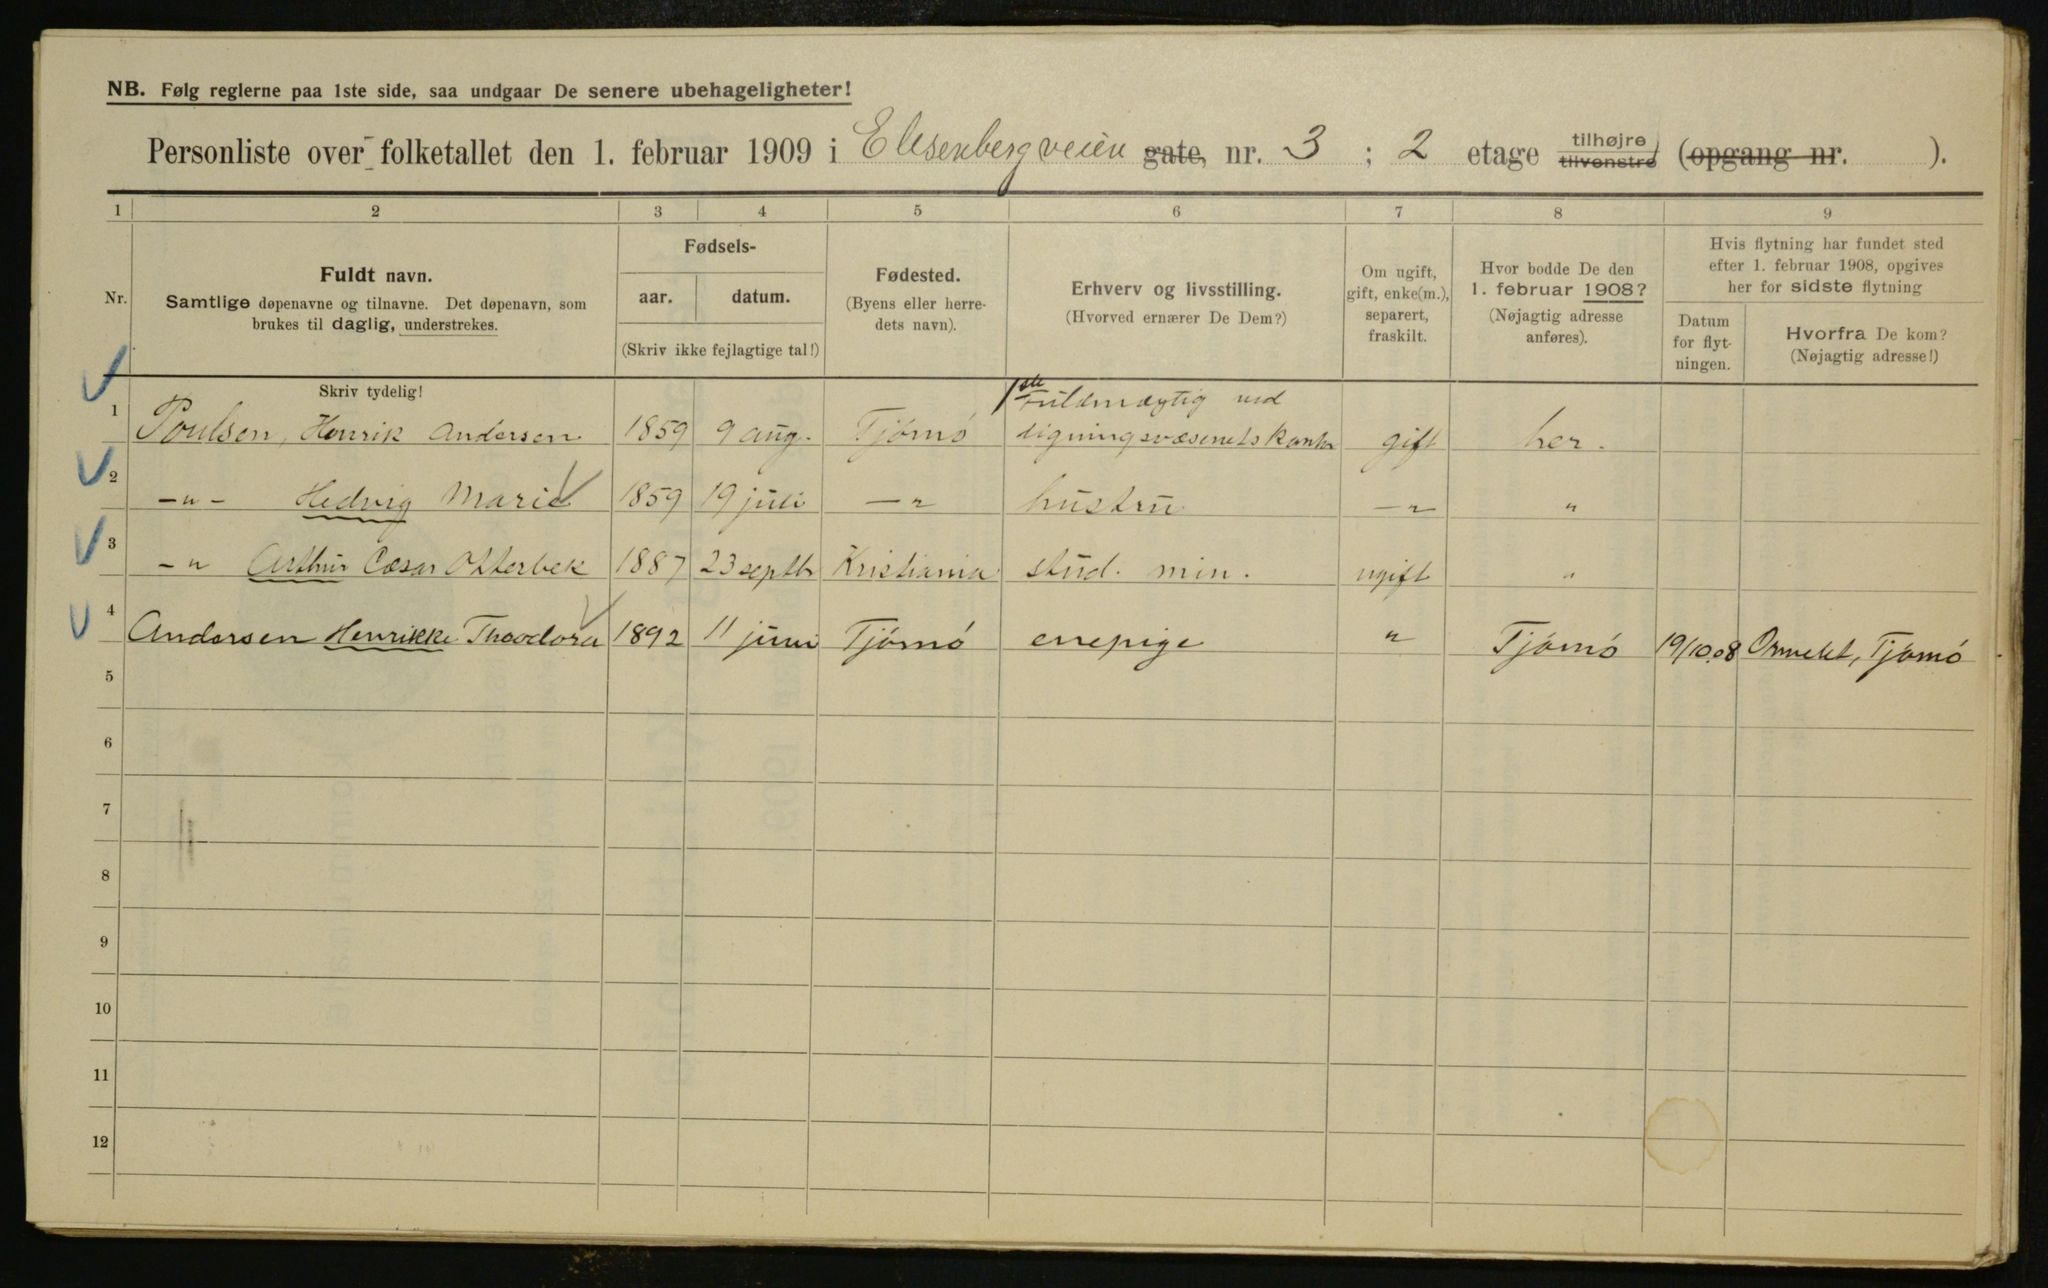 NB. Følg reglerne paa 1ste side, saa undgaar De senere ubehageligheter!
Personliste over folketallet den 1. februar 1909 i Elisenbergveien gate, nr. 3 ; 2 etage tilhøjre tilvenstre (opgang nr. ).
1 2 3 4 5 6 7 8 9
Nr.
Fuldt navn.
Samtlige døpenavne og tilnavne. Det døpenavn, som
brukes til daglig, understrekes.
Fødsels-
aar. datum.
(Skriv ikke fejlagtige tal!)
Fødested.
(Byens eller herre-
dets navn).
Erhverv og livsstilling.
(Hvorved ernærer De Dem?)
Om ugift,
gift, enke(m.),
separert,
fraskilt.
Hvor bodde De den
1. februar 1908?
(Nøjagtig adresse
anføres).
Hvis flytning har fundet sted
efter 1. februar 1908, opgives
her for sidste flytning
Datum
for flyt-
ningen.
Hvorfra De kom?
(Nøjagtig adresse!)
Skriv tydelig!
1ste Fuldmægtig ved
1 Poulsen, Henrik Andersen 1859 9 aug. Tjømö ligningsvæsenets kontor gift her.
2 -"- Hedvig Marie 1859 19 juli -" hustru -" "
3 -" Arthur Cæsar Otterbek 1887 23 septbr Kristiania stud. min. ugift "
4 Andersen Henrikke Theodora 1892 11 juni Tjømö enepige " Tjømö 19/10.08 Tjømö
5
6
7
8
9
10
11
12